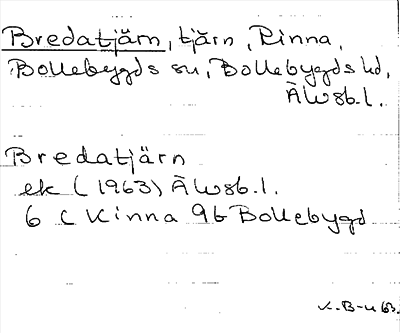 Bredatjärn, tjärn, Rinna,
Bollebygds sn, Bollebygds hd,
Älvsb. l.
Bredatjärn
ek (1963) Älvsb. l.
6 C Kinna 9b Bollebygd
K. B-n 63.